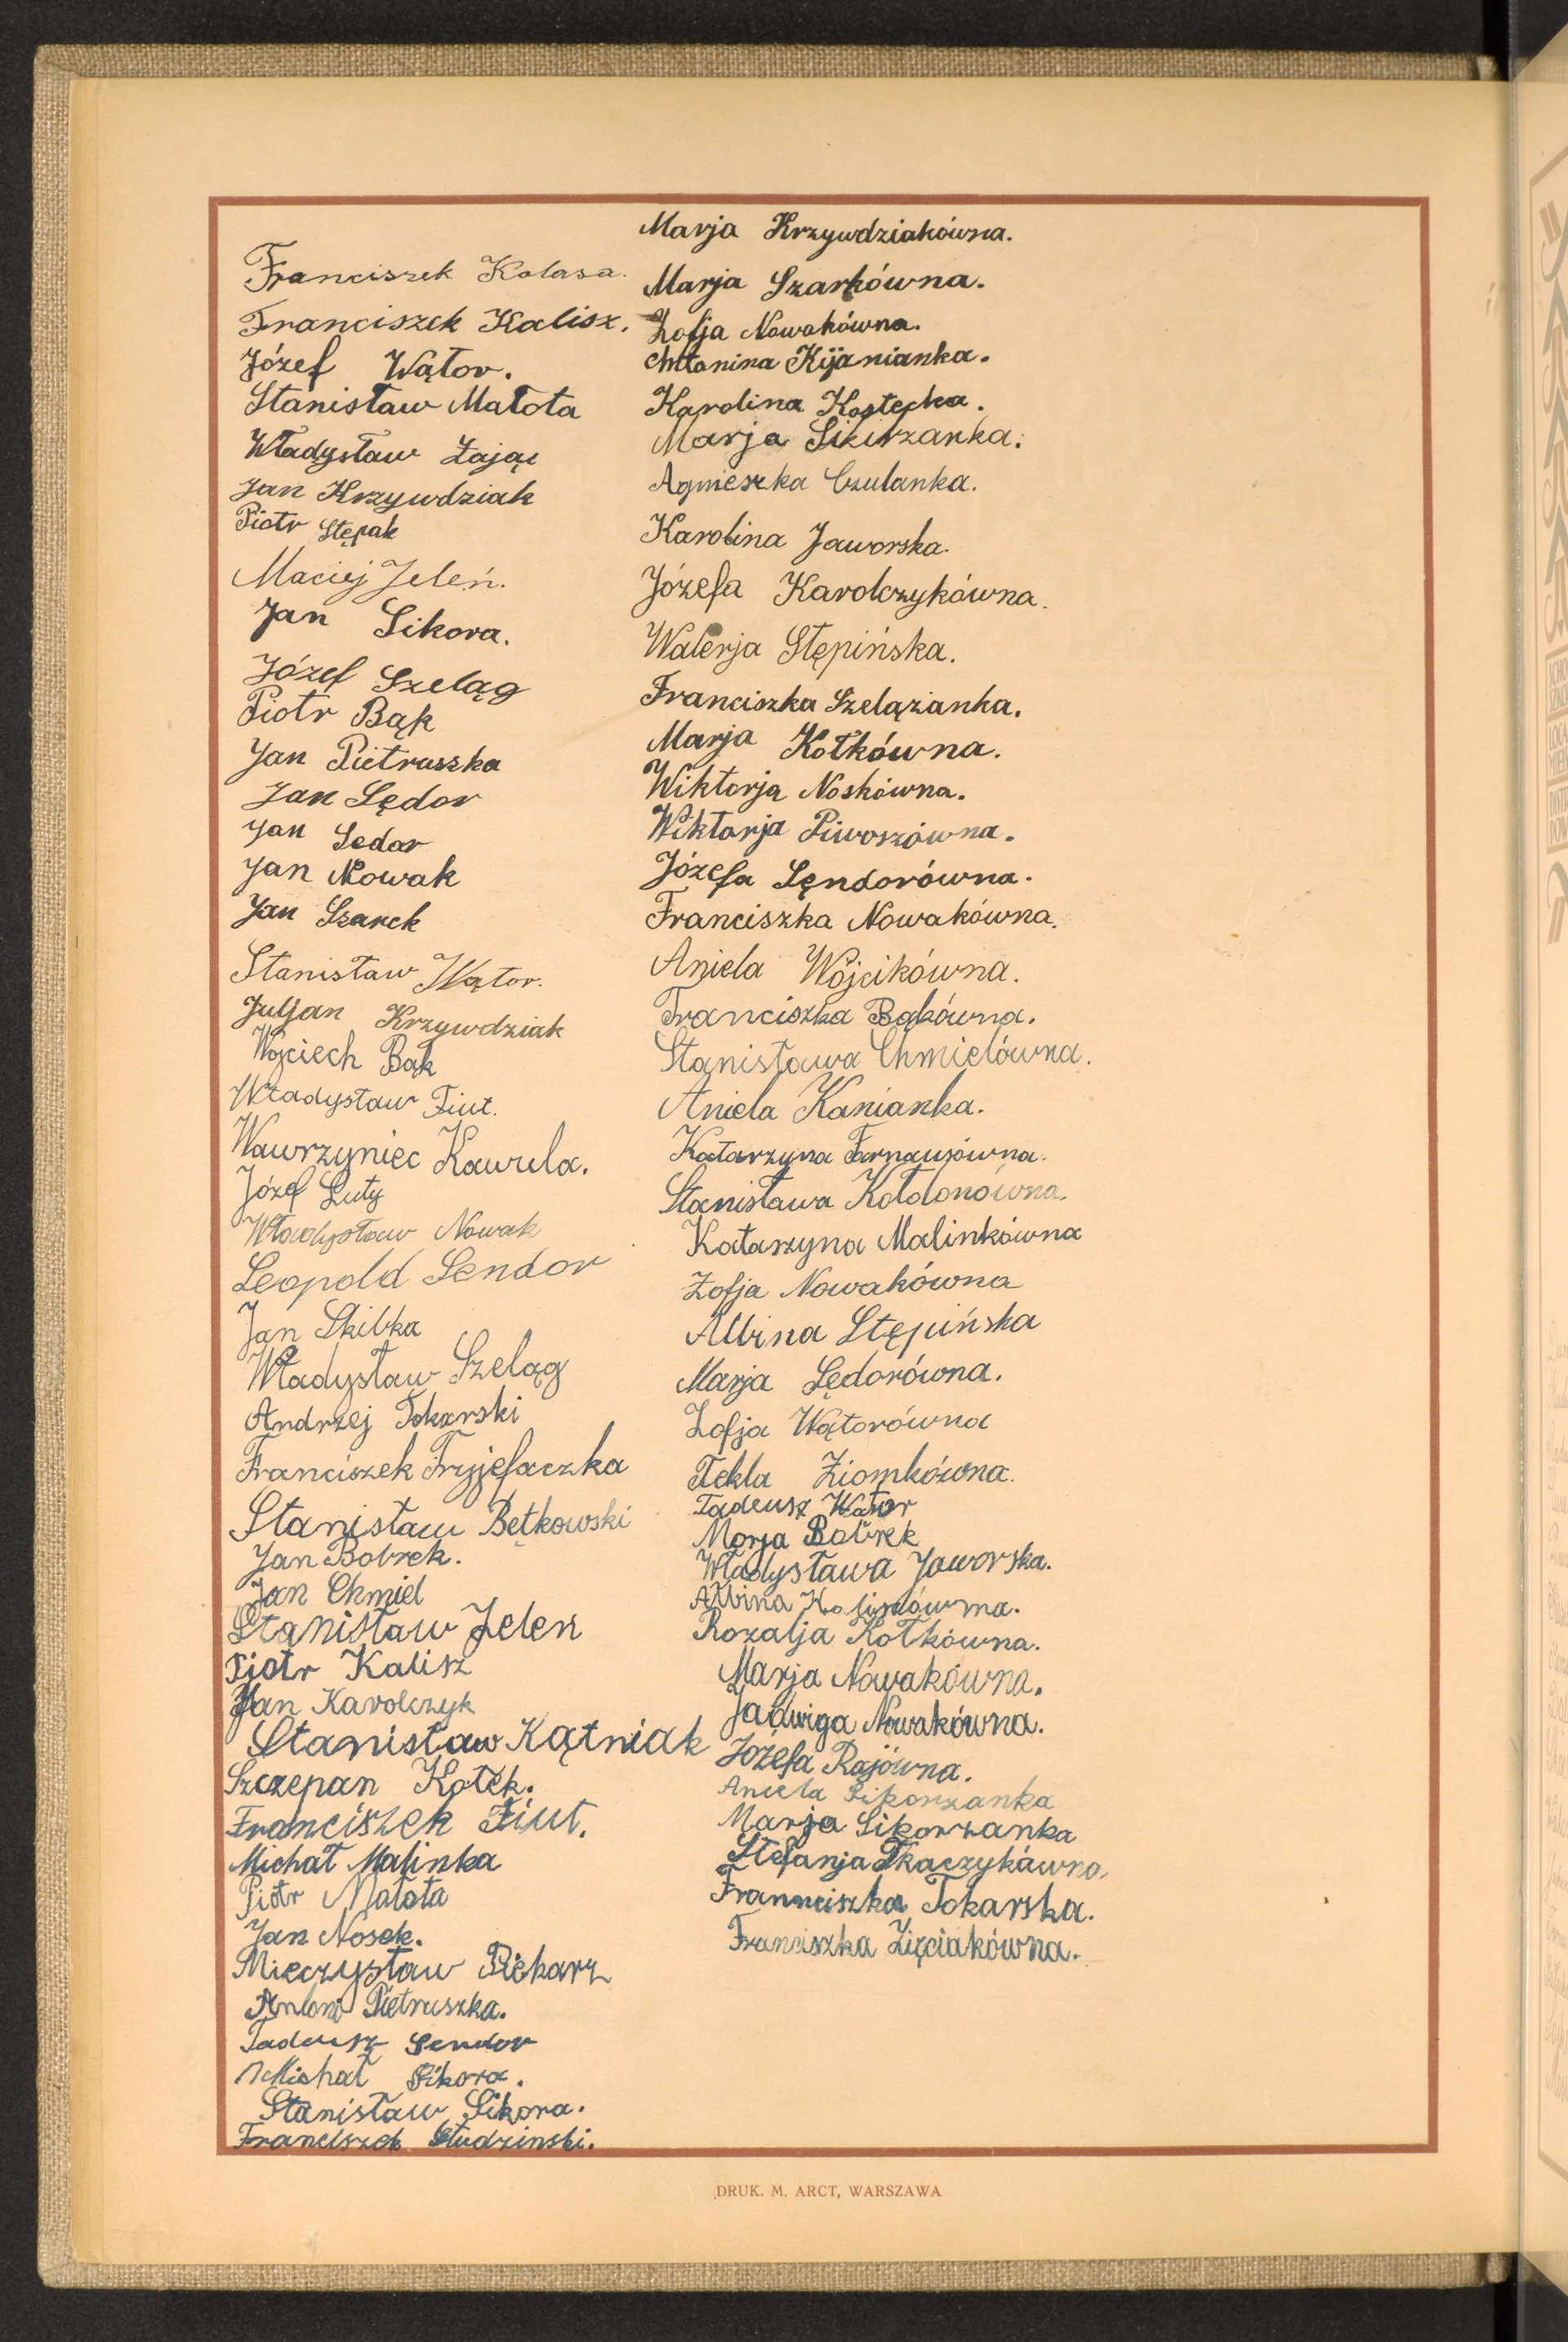 Franciszek Kolasa.
Franciszek Kalisz.
Józef Wątor.
Stanisław Małota
Władysław Zając
Jan Krzywdziak
Piotr Stępak
Maciej Jeleń.
Jan Sikora.
Józef Szeląg
Piotr Bąk
Jan Pietruszka
Jan Sędor
Jan Sedor
Jan Nowak
Jan Szarek
Stanisław Wątor.
Juljan Krzywdziak
Wojciech Bąk
Władysław Fiut.
Wawrzyniec Kawula.
Józef Luty
Władysław Nowak
Leopold Sendor
Jan Skibka
Władysław Szeląg
Andrzej Tokarski
Franciszek Fryjefaczka
Stanisław Bętkowski
Jan Bobrek.
Jan Chmiel
Stanisław Jelen
Piotr Kalisz
Jan Karolczyk
Stanisław Kątniak
Szczepan Kotek.
Franciszek Fiut.
Michał Malinka
Piotr Małota
Jan Nosek.
Mieczysław Piekarz
Antoni Pietruszka.
Tadeusz Sendor
Michał Sikora.
Stanisław Sikora.
Franciszek Studzinski.
Marja Krzywdziakówna.
Marja Szarkówna.
Zofja Nowakówna.
Antonina Kijanianka.
Karolina Kostecka.
Marja Sikorzanka.
Agnieszka Czulanka.
Karolina Jaworska.
Józefa Karolczykówna.
Walerja Stępińska.
Franciszka Szelązianka.
Marja Kotkówna.
Wiktorja Noskówna.
Wiktorja Piwoszówna.
Józefa Sęndorówna.
Franciszka Nowakówna.
Aniela Wójcikówna.
Franciszka Bąkówna.
Stanisława Chmielówna.
Aniela Kanianka.
Katarzyna
Stanisława Kołodonówna.
Katarzyna Malinkówna
Zofja Nowakówna
Albina Stępińska
Marja Sędorówna.
Zofja Wątorówna
Tekla Ziomkówna.
Tadeusz Wator
Marja Bobrek
Władysława Jaworska.
Albina
Rozalja Kotkówna.
Marja Nowakówna.
Jadwiga Nowakówna.
Józefa Rajówna.
Aniela Sikorzanka
Marja Sikorzanka
Stefanja Tkaczykówna.
Franciszka Tokarska.
Franciszka Zięciakówna.
DRUK. M. ARCT, WARSZAWA